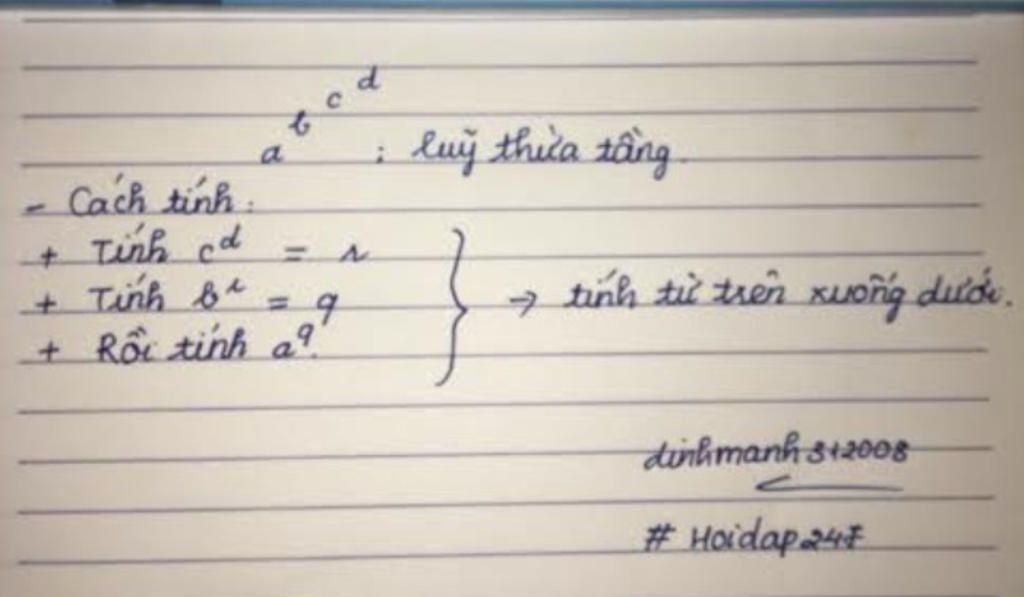 a^b^c^d : luỹ thừa tầng.
- Cách tính:
+ Tính c^d = r
+ Tính b^r = q
+ Rồi tính a^q.
→ tính từ trên xuống dưới.
dinhmanh312008
# Hoidap247